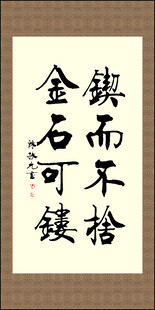 锲而不捨
金石可鏤